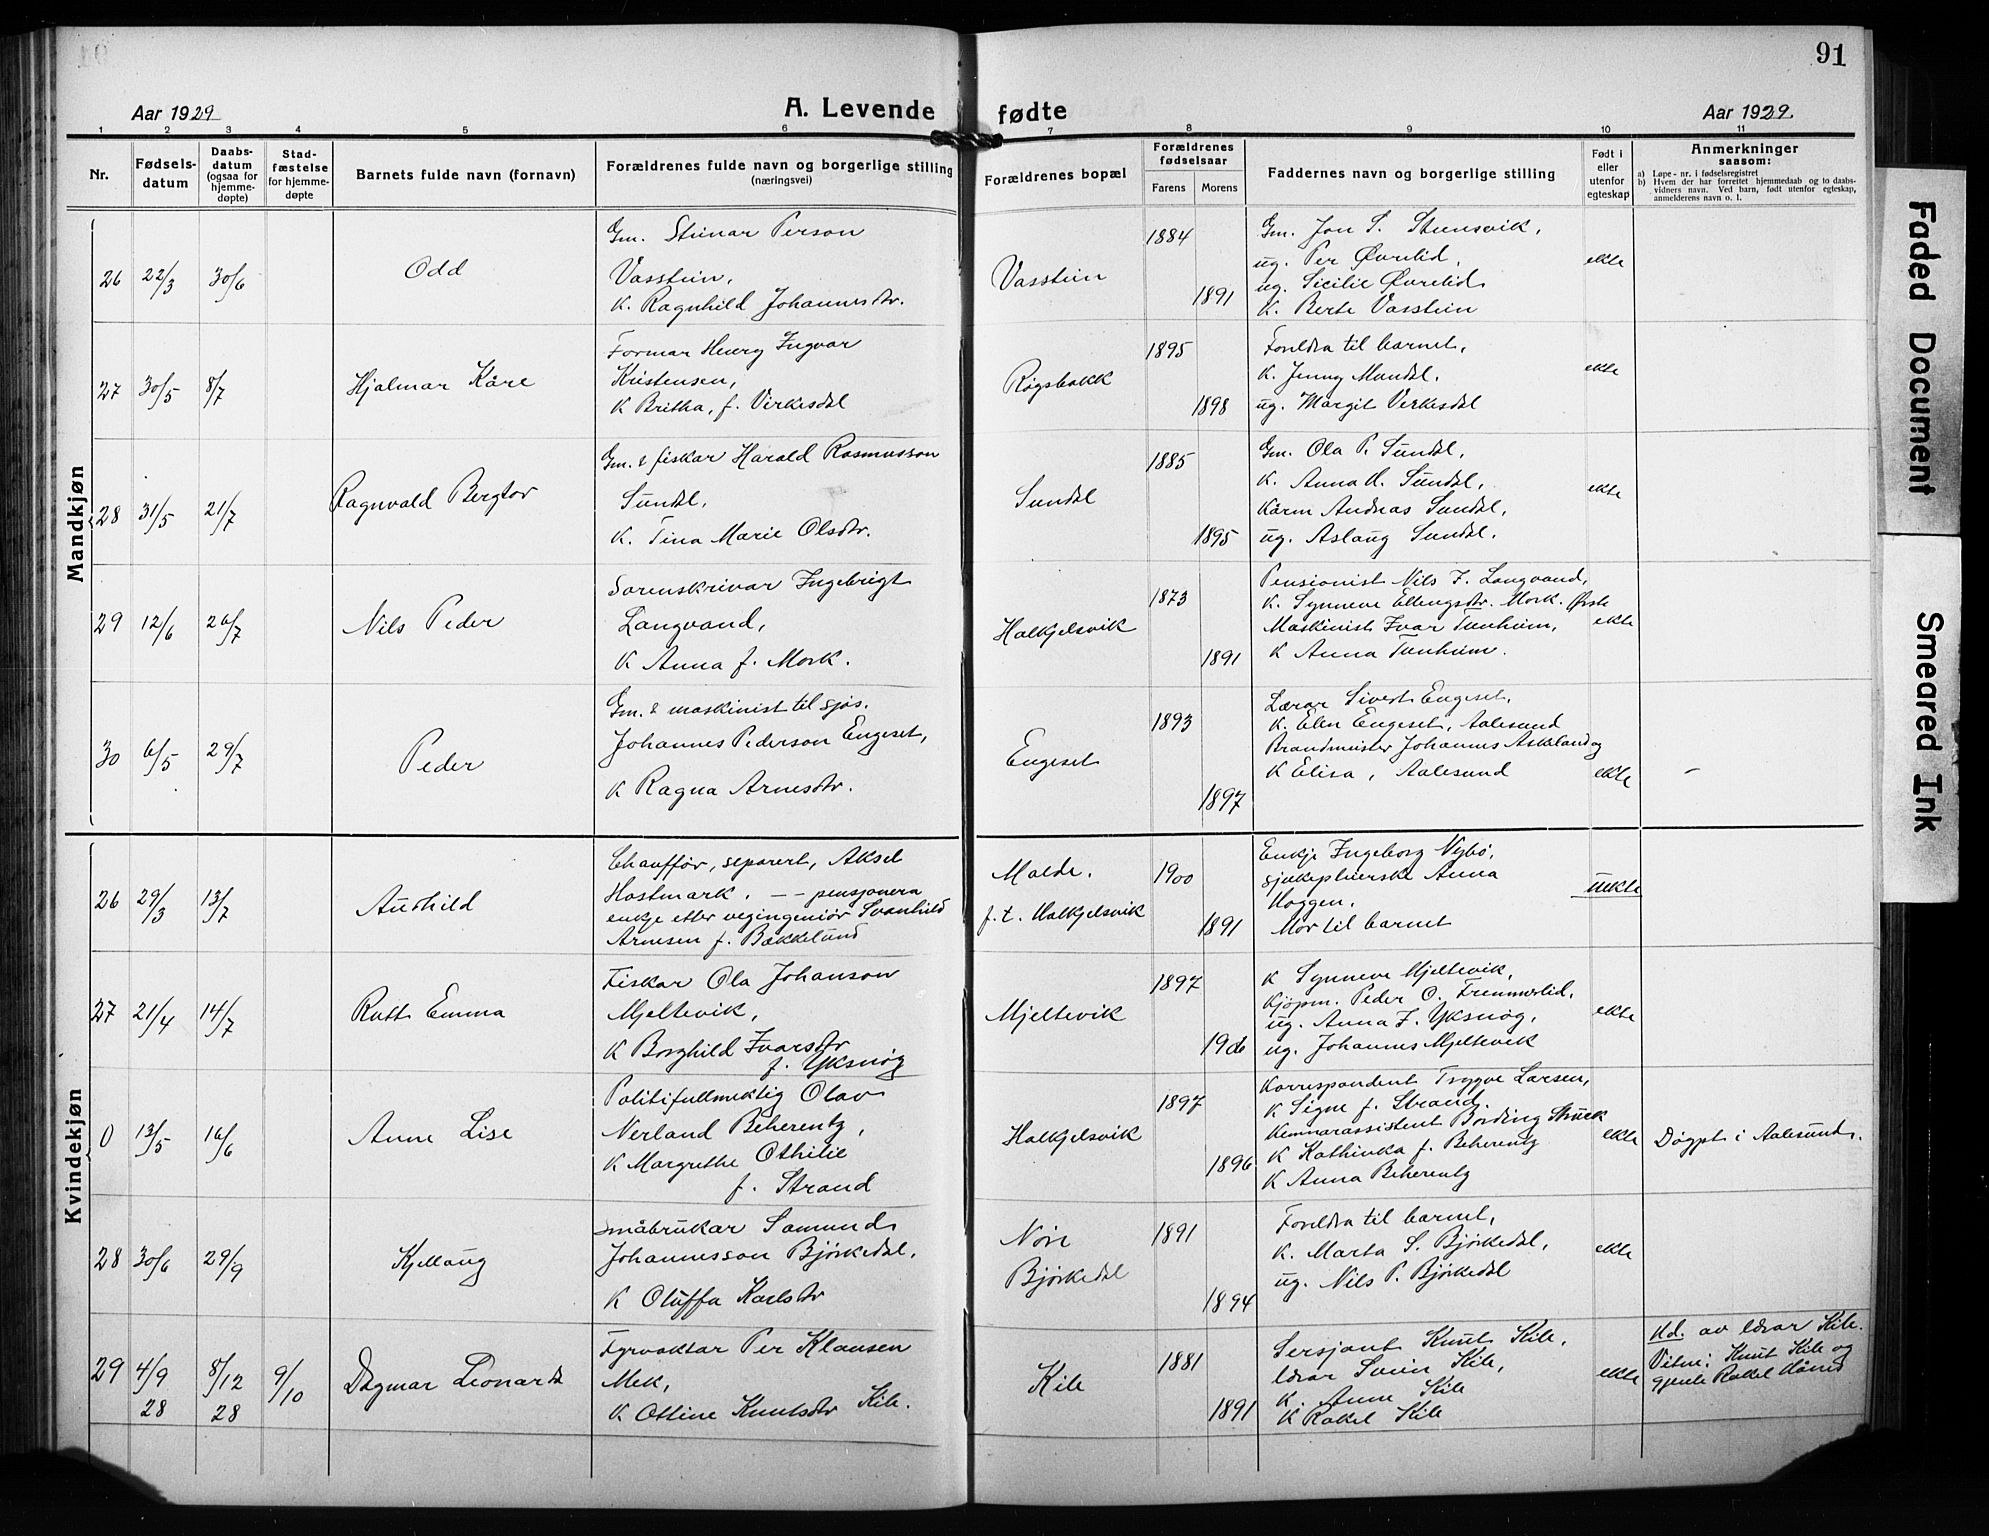 91
Aar 1929
A. Levende
fødte
Aar 1929
1 2 3 4 5 6 7 8 9 10 11
Nr.
Fødsels-
datum
Daabs-
datum
(ogsaa for
hjemme-
døpte)
Stad-
fæstelse
for hjemme-
døpte
Barnets fulde navn (fornavn)
Forældrenes fulde navn og borgerlige stilling
(næringsvei)
Forældrenes bopæl
Forældrenes
fødselsaar
Farens Morens
Faddernes navn og borgerlige stilling
Født i
eller
utenfor
egteskap
Anmerkninger
saasom:
a) Løpe-nr. i fødselsregistret
b) Hvem der har forrettet hjemmedaab og to daabs-
vidners navn. Ved barn, født utenfor egteskap,
anmelderens navn o. l.
Mandkjøn
26 22/3 30/6
Odd
Gm. Steinar Person
Vasstein,
K. Ragnhild Johannesdtr.
Vasstein
1884
1891
Gm. Jon S. Steinsvik,
ug. Per Øvrelid,
ug. Sicilie Øvrelid
K. Berte Vasstein
ekte
27 30/5 8/7
Hjalmar Kåre
Formar Henry Ingvar
Kristensen,
K Britha, f. Virkesdal
Røgsbakk
1895
1898
Foreldra til barnet,
K. Jenny Mandal,
ug. Margit Virkesdal
ekte
28 31/5 21/7
Ragnvald Bergtor
Gm. & fiskar Harald Rasmusson
Sundal,
K. Tina Marie Olsdtr.
Sundal
1885
1895
Gm. Ola P. Sundal,
K. Anna A. Sundal,
Karm Andreas Sundal,
ug. Aslaug Sundal.
ekte
29 12/6 26/7
Nils Peder
Sorenskrivar Ingebrigt
Langvand,
K Anna f. Mork.
Halkjelsvik
1873
1891
Pensionist Nils F. Langvand,
K. Synneve Ellingsdtr. Mork. Ørsta
Maskinist Ivar Tunheim,
K Anna Tunheim.
ekte
30 6/5 29/7
Peder
Gm. & maskinist til sjøs.
Johannes Pederson Engeset,
K Ragna Arnesdtr.
Engeset
1893
1897
Lærar Sivert Engeset,
K. Elen Engeset, Aalesund
Brandmeister Johannes Askeland og
K Elisa, Aalesund
ekte
Kvindekjøn
26 29/3 13/7
Aushild
Chauffør, separert, Aksel
Hostmark. - - pensjonera
enkje etter vegingeniør Svanhild
Arnesen f. Bakkelund
Molde.
f. t. Halkjelsvik
1900
1891
Enkje Ingeborg Nybø,
sjukepleierske Anna
Haggen.
Mor til barnet
uekte
27 21/4 14/7
Rutt Emma
Fiskar Ola Johanson
Mjeltevik,
K Borghild Ivarsdtr
f. Yksnøy
Mjeltevik
1897
1906
K Synneve Mjeltevik,
Kjøpm. Peder O. Fremmerlid,
ug. Anna I. Yksnøy,
ug. Johannes Mjeltevik
ekte
0 13/5 16/6
Anne Lise
Politifullmektig Olav
Nerland Beherentz,
K Margrethe Othilie
f. Strand
Halkjelsvik
1897
1896
Korrespondent Tryggve Larsen,
K Signe f. Strand.
Kemnarassistent Bording Struck
K Kathinka f. Beherentz
K Anna Beherentz
ekte
Døypt i Aalesund.
28 30/6 29/9
Kjellaug
småbrukar Samund
Johannesson Bjørkedal,
K Oluffa Karlsdtr
Nøre
Bjørkedal
1891
1894
Foreldra til barnet,
K. Marta S. Bjørkedal,
ug. Nils P. Bjørkedal
ekte
29 4/9 28 8/12 28 9/10
Dagmar Leonarda
Fyrvaktar Per Klausen
Mek,
K Ottine Knutsdtr Kile.
Kile
1881
1891
Sersjant Knut Kile,
lærar Svein Kile,
K. Anne Kile
K Rakel Kile
ekte
Hd. av lærar Kile.
Vitne: Knut Kile og
gjente Rakel
Faded Document
Smeared Ink